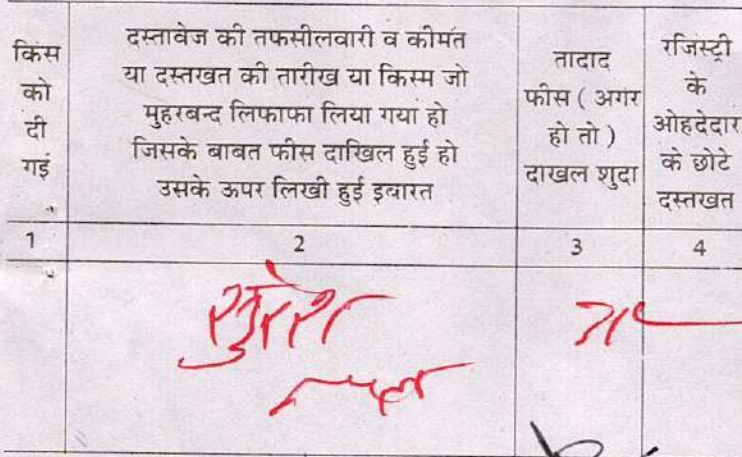 किस
को
दी
गई
दस्तावेज की तफसीलवारी व कीमत
या दस्तखत की तारीख या किस्म जो
मुहरबन्द लिफाफा लिया गया हो
जिसके बाबत फीस दाखिल हुई हो
उसके ऊपर लिखी हुई इबारत
तादाद
फीस ( अगर
हो तो )
दाखल शुदा
रजिस्ट्री
के
ओहदेदार
के छोटे
दस्तखत
1 2 3 4
सुरेश